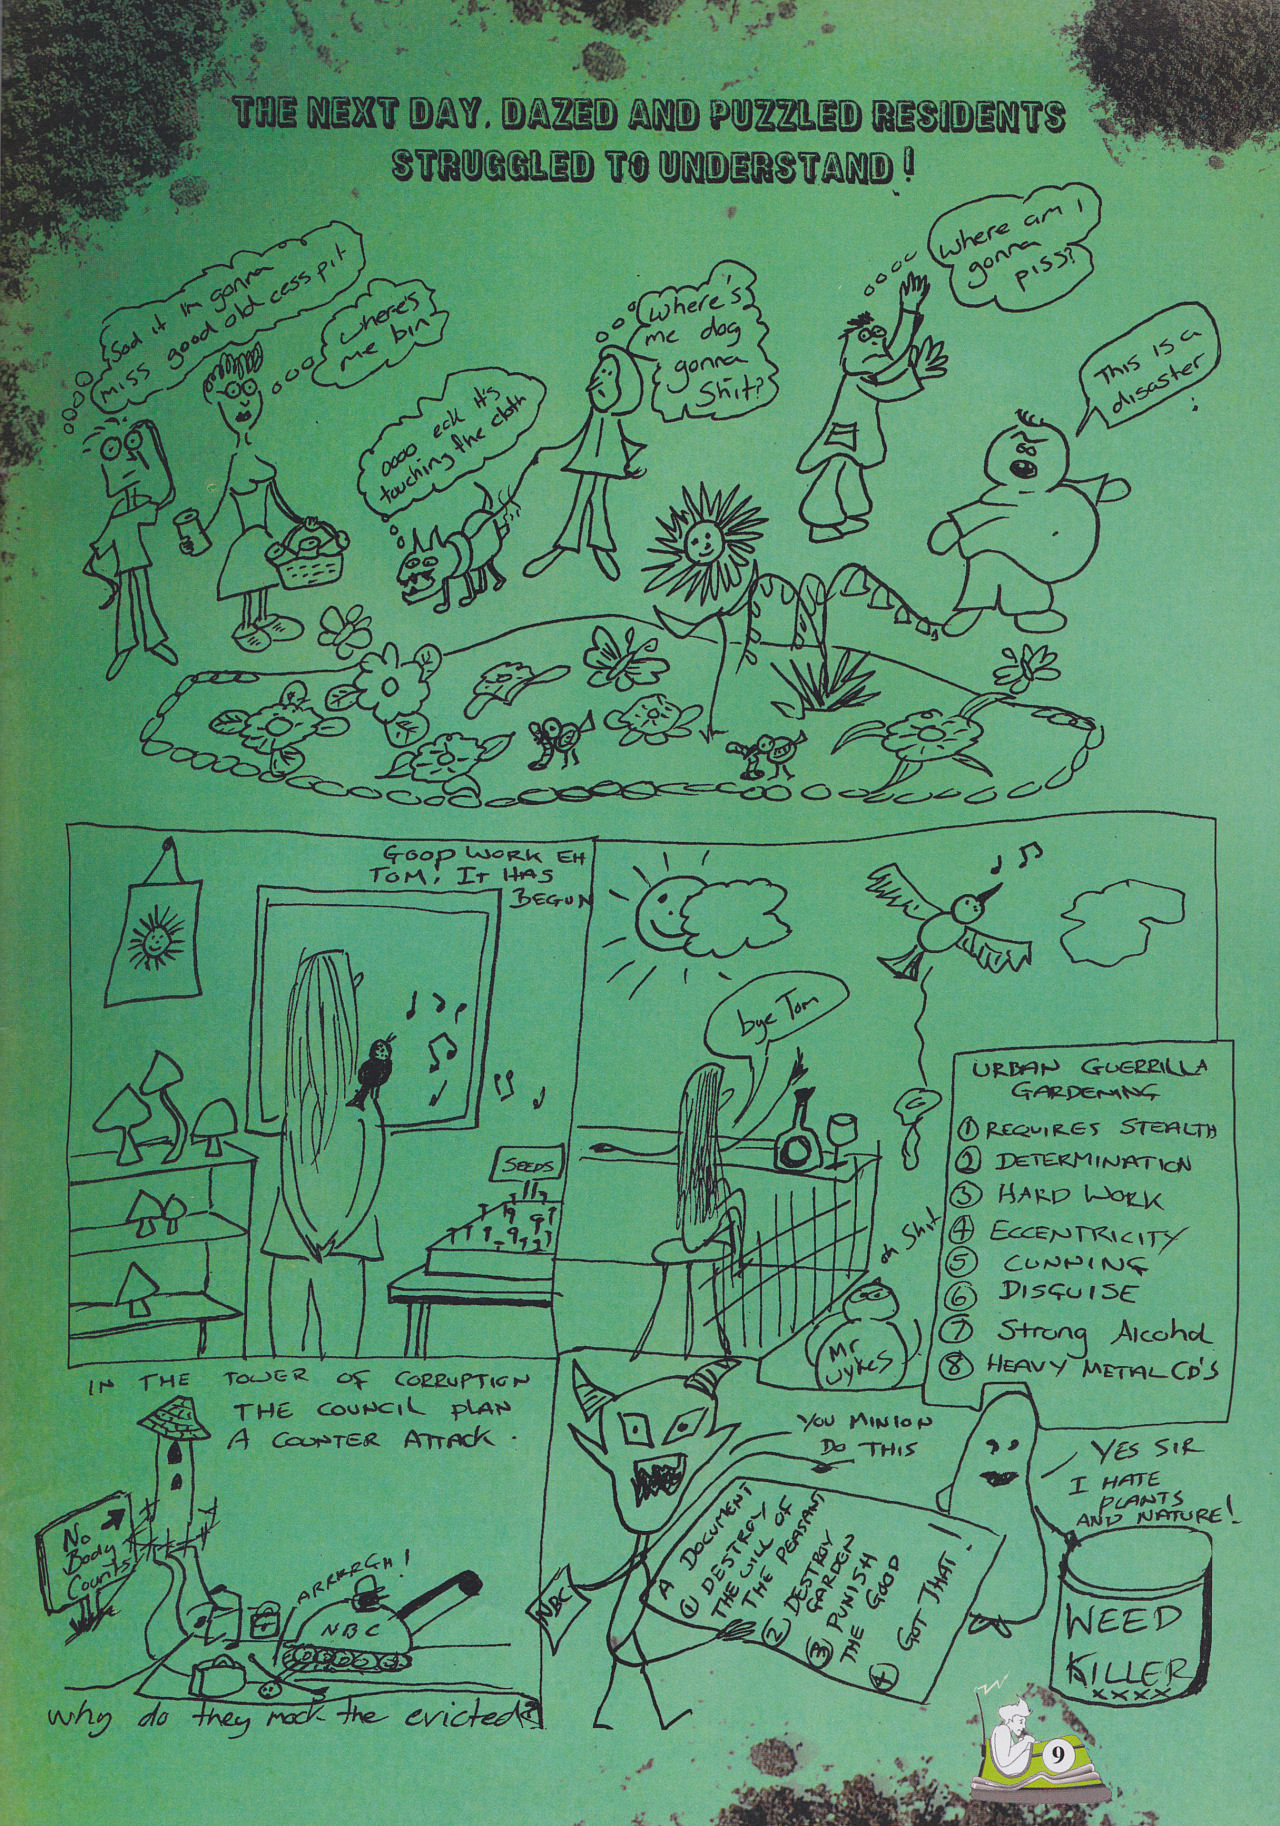 THE NEXT DAY, DAZED AND PUZZLED RESIDENTS
STRUGGLED TO UNDERSTAND!
Sod it I'm gonna
miss good old cess pit
where's
me bin
oooo eck it's
touching the cloth
Where's
me dog
gonna
Shit?
Where am I
gonna
piss?
This is a
disaster!
GOOD WORK EH
TOM, IT HAS
BEGUN
SEEDS
bye Tom
oh Shit
Mr
Jykes
URBAN GUERRILLA
GARDENING
① REQUIRES STEALTH
② DETERMINATION
③ HARD WORK
④ ECCENTRICITY
⑤ CUNNING
⑥ DISGUISE
⑦ Strong Alcohol
⑧ HEAVY METAL CD'S
IN THE TOWER OF CORRUPTION
THE COUNCIL PLAN
A COUNTER ATTACK.
No
Body
Counts
ARRRRGH!
NBC
why do they mock the evicted?
YOU MINION
DO THIS
NBC
A DOCUMENT
① DESTROY
THE WILL OF
THE PEASANT
② DESTROY
GARDEN
③ PUNISH
THE GOOD
④ GOT THAT!
YES SIR
I HATE
PLANTS
AND NATURE!
WEED
KILLER
xxxx
9